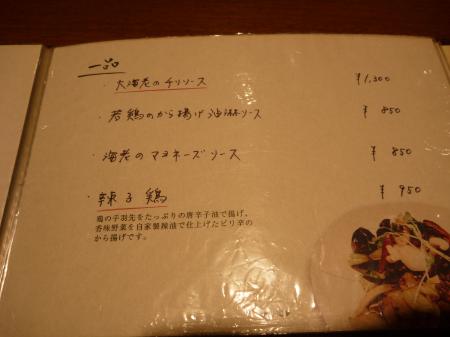 一品
・大海老のチリソース ¥1,300
・若鶏のから揚げ油淋ソース ¥850
・海老のマヨネーズソース ¥850
・辣子鶏 ¥950
鶏の手羽先をたっぷりの唐辛子油で揚げ、
香味野菜を自家製辣油で仕上げたピリ辛の
から揚げです。